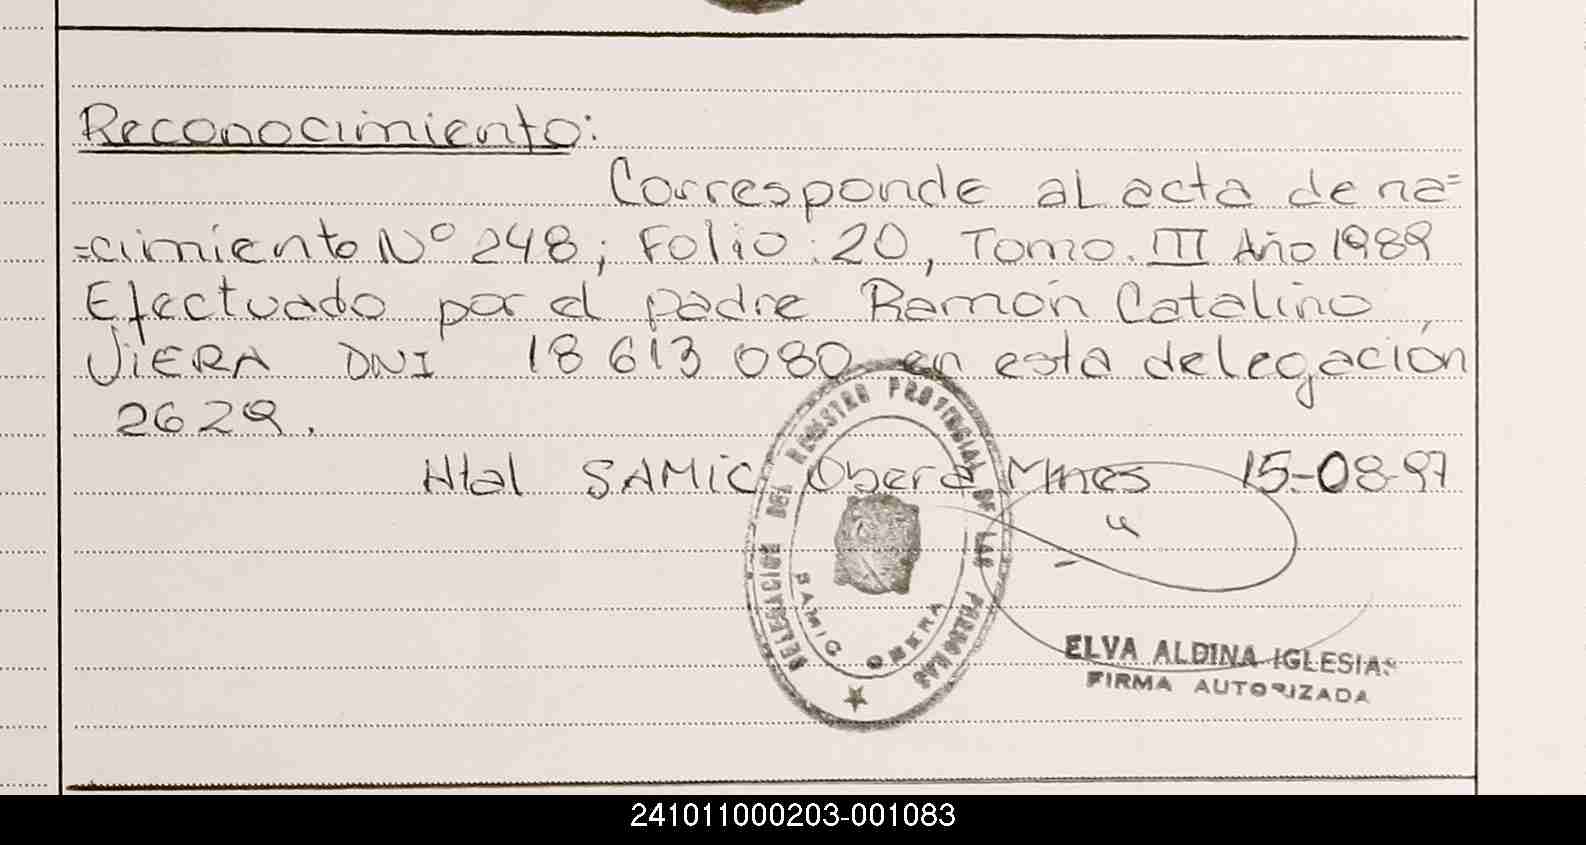 Reconocimiento:
Corresponde al acta de na=
=cimiento Nº 248; Folio: 20, Tomo. III Año 1989
Efectuado por el padre Ramón Catalino,
VIERA DNI 18 613 080 en esta delegación
2629.
Htal SAMIC Oberá Mnes 15-08-97
DELEGACION DEL REGISTRO PROVINCIAL DE LAS PERSONAS
SAMIC OBERA
ELVA ALDINA IGLESIAS
FIRMA AUTORIZADA
241011000203-001083